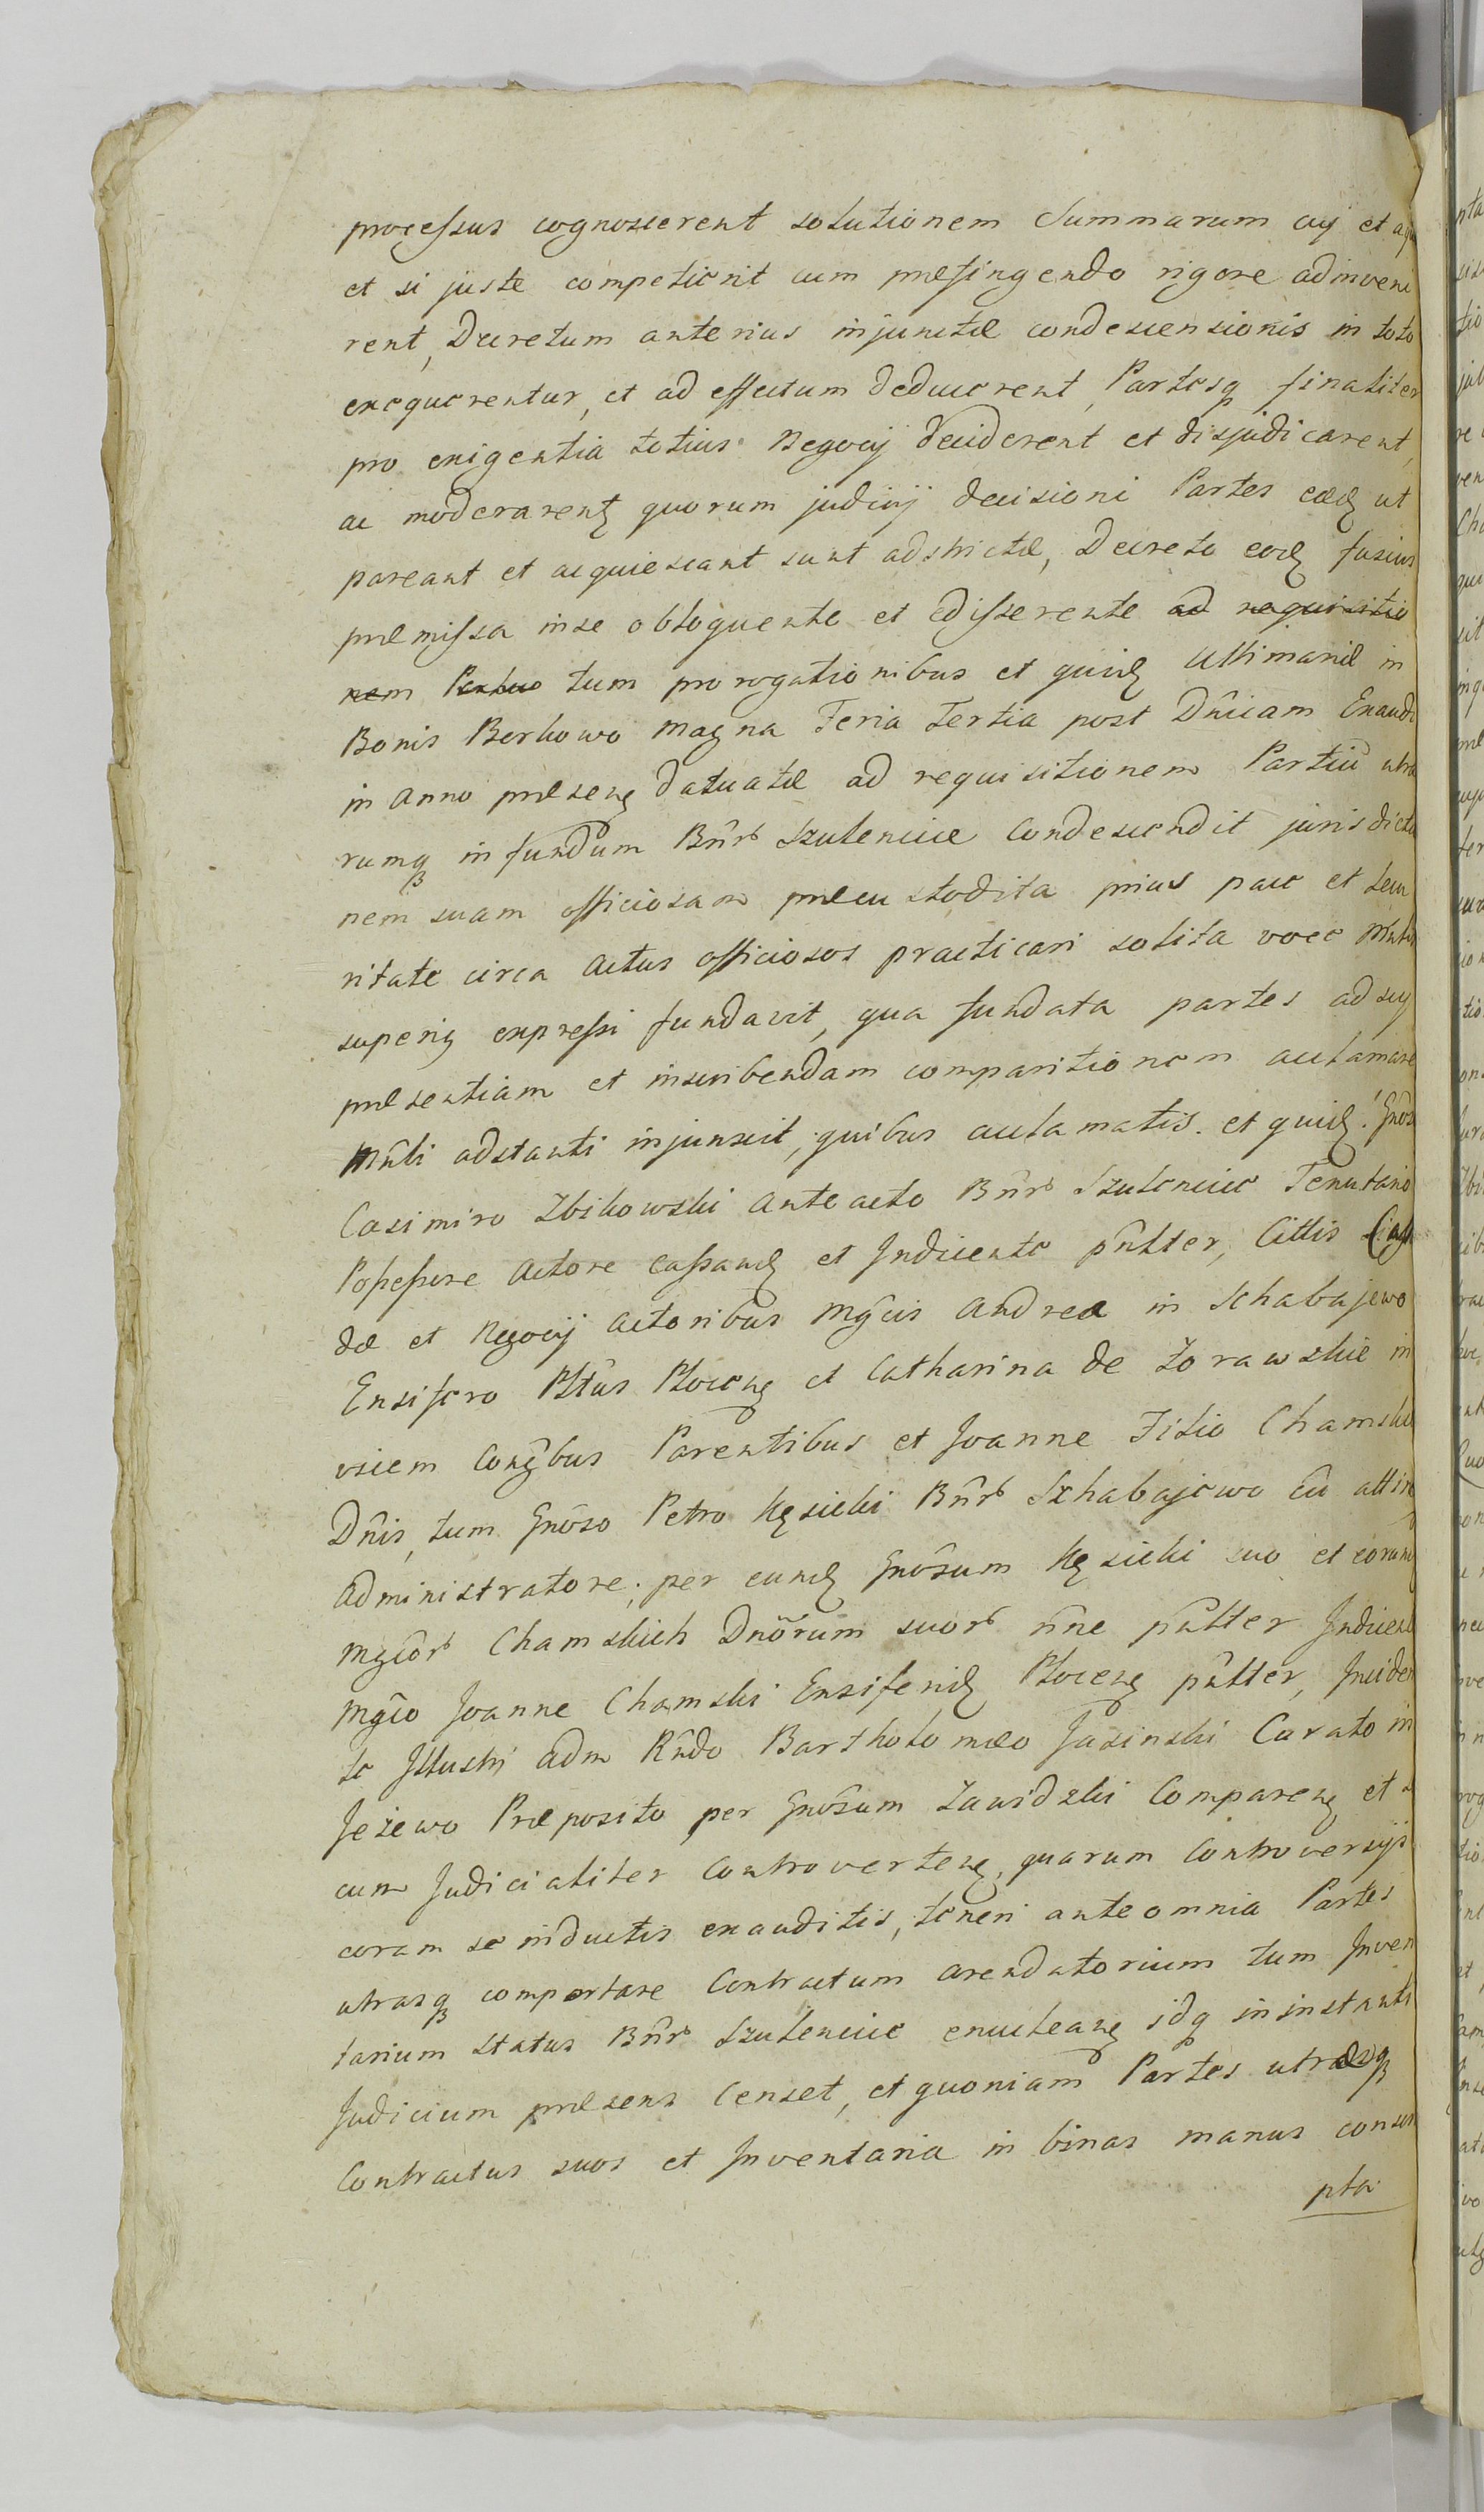 processus cognoscerent solutionem Summarum cuj et
et si juste competierit cum præfingendo rigore adinveni
rent, Decretum anterius injunctæ condescensionis in toto
exequerentur, et ad effectum deducerent, Partesq finaliter
pro exigentia totius Negocij deciderent et disjudicarent,
ac moderarent quorum judicij decisioni Partes eæd ut
pareant et acquiescant sunt adstrictæ, Decreto eod fusius
præmissa inse obloquente et edisserente ad requisitio
nem Partiu tum prorogationibus et quid Ultimariæ in
Bonis Borkowo magna Feria Tertia post Dnicam Exaudi
in Anno præsen datuatæ ad requisitionem Partiu utra
rumq in fundum Bnr Szulencice Condescendit jurisdictio
nem suam officiosam præcustodita prius pace et secu
ritate circa Actus officiosos practicari solita voce
superig expressi fundavit, qua fundata partes ad suj
præsentiam et inscribendam comparitionem acclamare
Mnli adstanti injunxit, quibus acclamatis. et quid! Gnos
Casimiro Zbikowski anteacto Bnr Szulencice Tenutario
Possessore Actore Cassand et Inducente pnlter, Cittis
dæ et Negocij Actoribus Mgcis Andrea in Schabajewo
Ensifero Pltûs Plocen et Catharina de Zorawskie in
vicem Congbus Parentibus et Joanne Filio Chamskie
Dnis, tum Gnoso Petro Kęsicki Bnr Schabajewo cu attin
Administratore, per eund Gnosum Kęsicki suo et eorund
Mgcor Chamskich Dnorum suor nne pnlter Inducent
Mgco Joanne Chamski Ensiferid Plocen pnlter, Inciden
te Illustri Adm Rndo Bartholomæo Jasinski Curato in
Jeżewo Præposito per Gnosum Zawidzki Comparen et
cum Judicialiter Controverten, quarum Controversijs
coram se inductis exauditis, teneri ante omnia Partes
utrasq comportare Contractum arendatorium tum Inven
tarium status Bnr Szulencice enuclean idq in instanti
Judicium præsens Censet, et quoniam Partes utræq
Contractus suos et Inventaria in binas manus conscri
pta